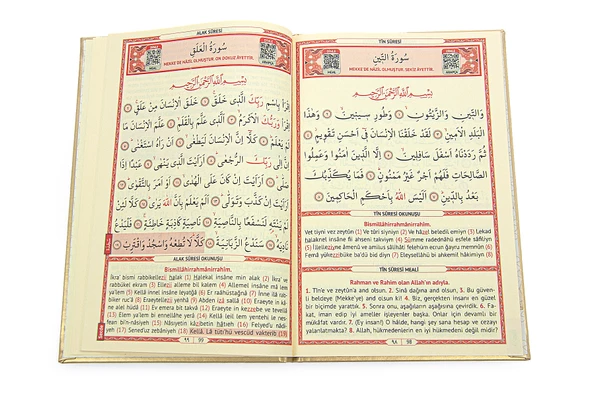 ALAK SÛRESİ
سُورَةُ الْعَلَقِ
MEKKE'DE NÂZİL OLMUŞTUR. ON DOKUZ ÂYETTİR.
بِسْمِ اللّٰهِ الرَّحْمٰنِ الرَّحِيمِ
اِقْرَأْ بِاسْمِ رَبِّكَ الَّذِى خَلَقَ خَلَقَ الْاِنْسَانَ مِنْ عَلَقٍ
اِقْرَأْ وَرَبُّكَ الْاَكْرَمُ اَلَّذِى عَلَّمَ بِالْقَلَمِ عَلَّمَ الْاِنْسَانَ مَا
لَمْ يَعْلَمْ كَلَّا اِنَّ الْاِنْسَانَ لَيَطْغٰى اَنْ رَاٰهُ اسْتَغْنٰى
اِنَّ اِلٰى رَبِّكَ الرُّجْعٰى اَرَاَيْتَ الَّذِى يَنْهٰى عَبْدًا اِذَا
صَلّٰى اَرَاَيْتَ اِنْ كَانَ عَلَى الْهُدٰى اَوْ اَمَرَ بِالتَّقْوٰى
اَرَاَيْتَ اِنْ كَذَّبَ وَتَوَلّٰى اَلَمْ يَعْلَمْ بِاَنَّ اللّٰهَ يَرٰى كَلَّا لَئِنْ
لَمْ يَنْتَهِ لَنَسْفَعًا بِالنَّاصِيَةِ نَاصِيَةٍ كَاذِبَةٍ خَاطِئَةٍ فَلْيَدْعُ
نَادِيَهُ سَنَدْعُ الزَّبَانِيَةَ كَلَّا لَا تُطِعْهُ وَاسْجُدْ وَاقْتَرِبْ
ALAK SÛRESİ OKUNUŞU
Bismillâhirrahmânirrahîm.
İkra' bismi rabbikellezî halak (1) Halekal insâne min alak (2) İkra' ve
rabbükel ekram (3) Ellezî alleme bil kalem (4) Allemel insâne mâ lem
ya'lem (5) Kellâ innel insâne leyatğâ (6) En raâhüstağnâ (7) İnne ilâ rab-
bike rucâ (8) Eraeytellezî yenhâ (9) Abden izâ sallâ (10) Eraeyte in kâ-
ne alel hüdâ (11) Ev emera bit takvâ (12) Eraeyte in kezzebe ve tevellâ
(13) Elem ya'lem bi ennellâhe yerâ (14) Kellâ leil lem yentehi le nes-
fean bin-nâsiyeh (15) Nâsıyetin kâzibetin hâtıeh (16) Felyed'u nâdi-
yeh (17) Sened'uz zebâniyeh (18) Kellâ, Lâ tütı'hü vescüd vakterib (19)
٩٩ 99
TÎN SÛRESİ
سُورَةُ التِّينِ
MEKKE'DE NÂZİL OLMUŞTUR. SEKİZ ÂYETTİR.
بِسْمِ اللّٰهِ الرَّحْمٰنِ الرَّحِيمِ
وَالتِّينِ وَالزَّيْتُونِ وَطُورِ سِينِينَ وَهٰذَا
الْبَلَدِ الْاَمِينِ لَقَدْ خَلَقْنَا الْاِنْسَانَ فِى اَحْسَنِ تَقْوِيمٍ
ثُمَّ رَدَدْنَاهُ اَسْفَلَ سَافِلِينَ اِلَّا الَّذِينَ اٰمَنُوا وَعَمِلُوا
الصَّالِحَاتِ فَلَهُمْ اَجْرٌ غَيْرُ مَمْنُونٍ فَمَا يُكَذِّبُكَ
بَعْدُ بِالدِّينِ اَلَيْسَ اللّٰهُ بِاَحْكَمِ الْحَاكِمِينَ
TÎN SÛRESİ OKUNUŞU
Bismillâhirrahmânirrahîm.
Vet tîyni vez zeytûn (1) Ve tûri sîyniyn (2) Ve hâzel beledil emiyn (3) Lekad
halaknel insâne fî ahseni takviym (4) Sümme radednâhü esfele sâfiliyn
(5) İllellezîyne âmenû ve amilus sâlihâti felehüm ecrun ğayru memnûn (6)
Femâ yükezzibüke ba'dü bid diyn (7) Eleysellâhü bi ahkemil hâkimiyn (8)
TÎN SÛRESİ MEALİ
Rahman ve Rahim olan Allah'ın adıyla.
1. Tîn'e ve zeytûn'a and olsun. 2. Sinâ dağına and olsun, 3. Bu güven-
li beldeye (Mekke'ye) and olsun ki! 4. Biz, gerçekten insanı en güzel
bir biçimde yarattık. 5. Sonra onu, aşağıların aşağısına çevirdik. 6. Fa-
kat, iman edip iyi ameller işleyenler başka. Onlar için devamlı bir
mükâfat vardır. 7. (Ey insan!) O hâlde, hangi şey sana hesap ve cezayı
yalanlatmakta? 8. Allah, hükmedenlerin en iyi hükmedeni değil midir?
٩٨ 98